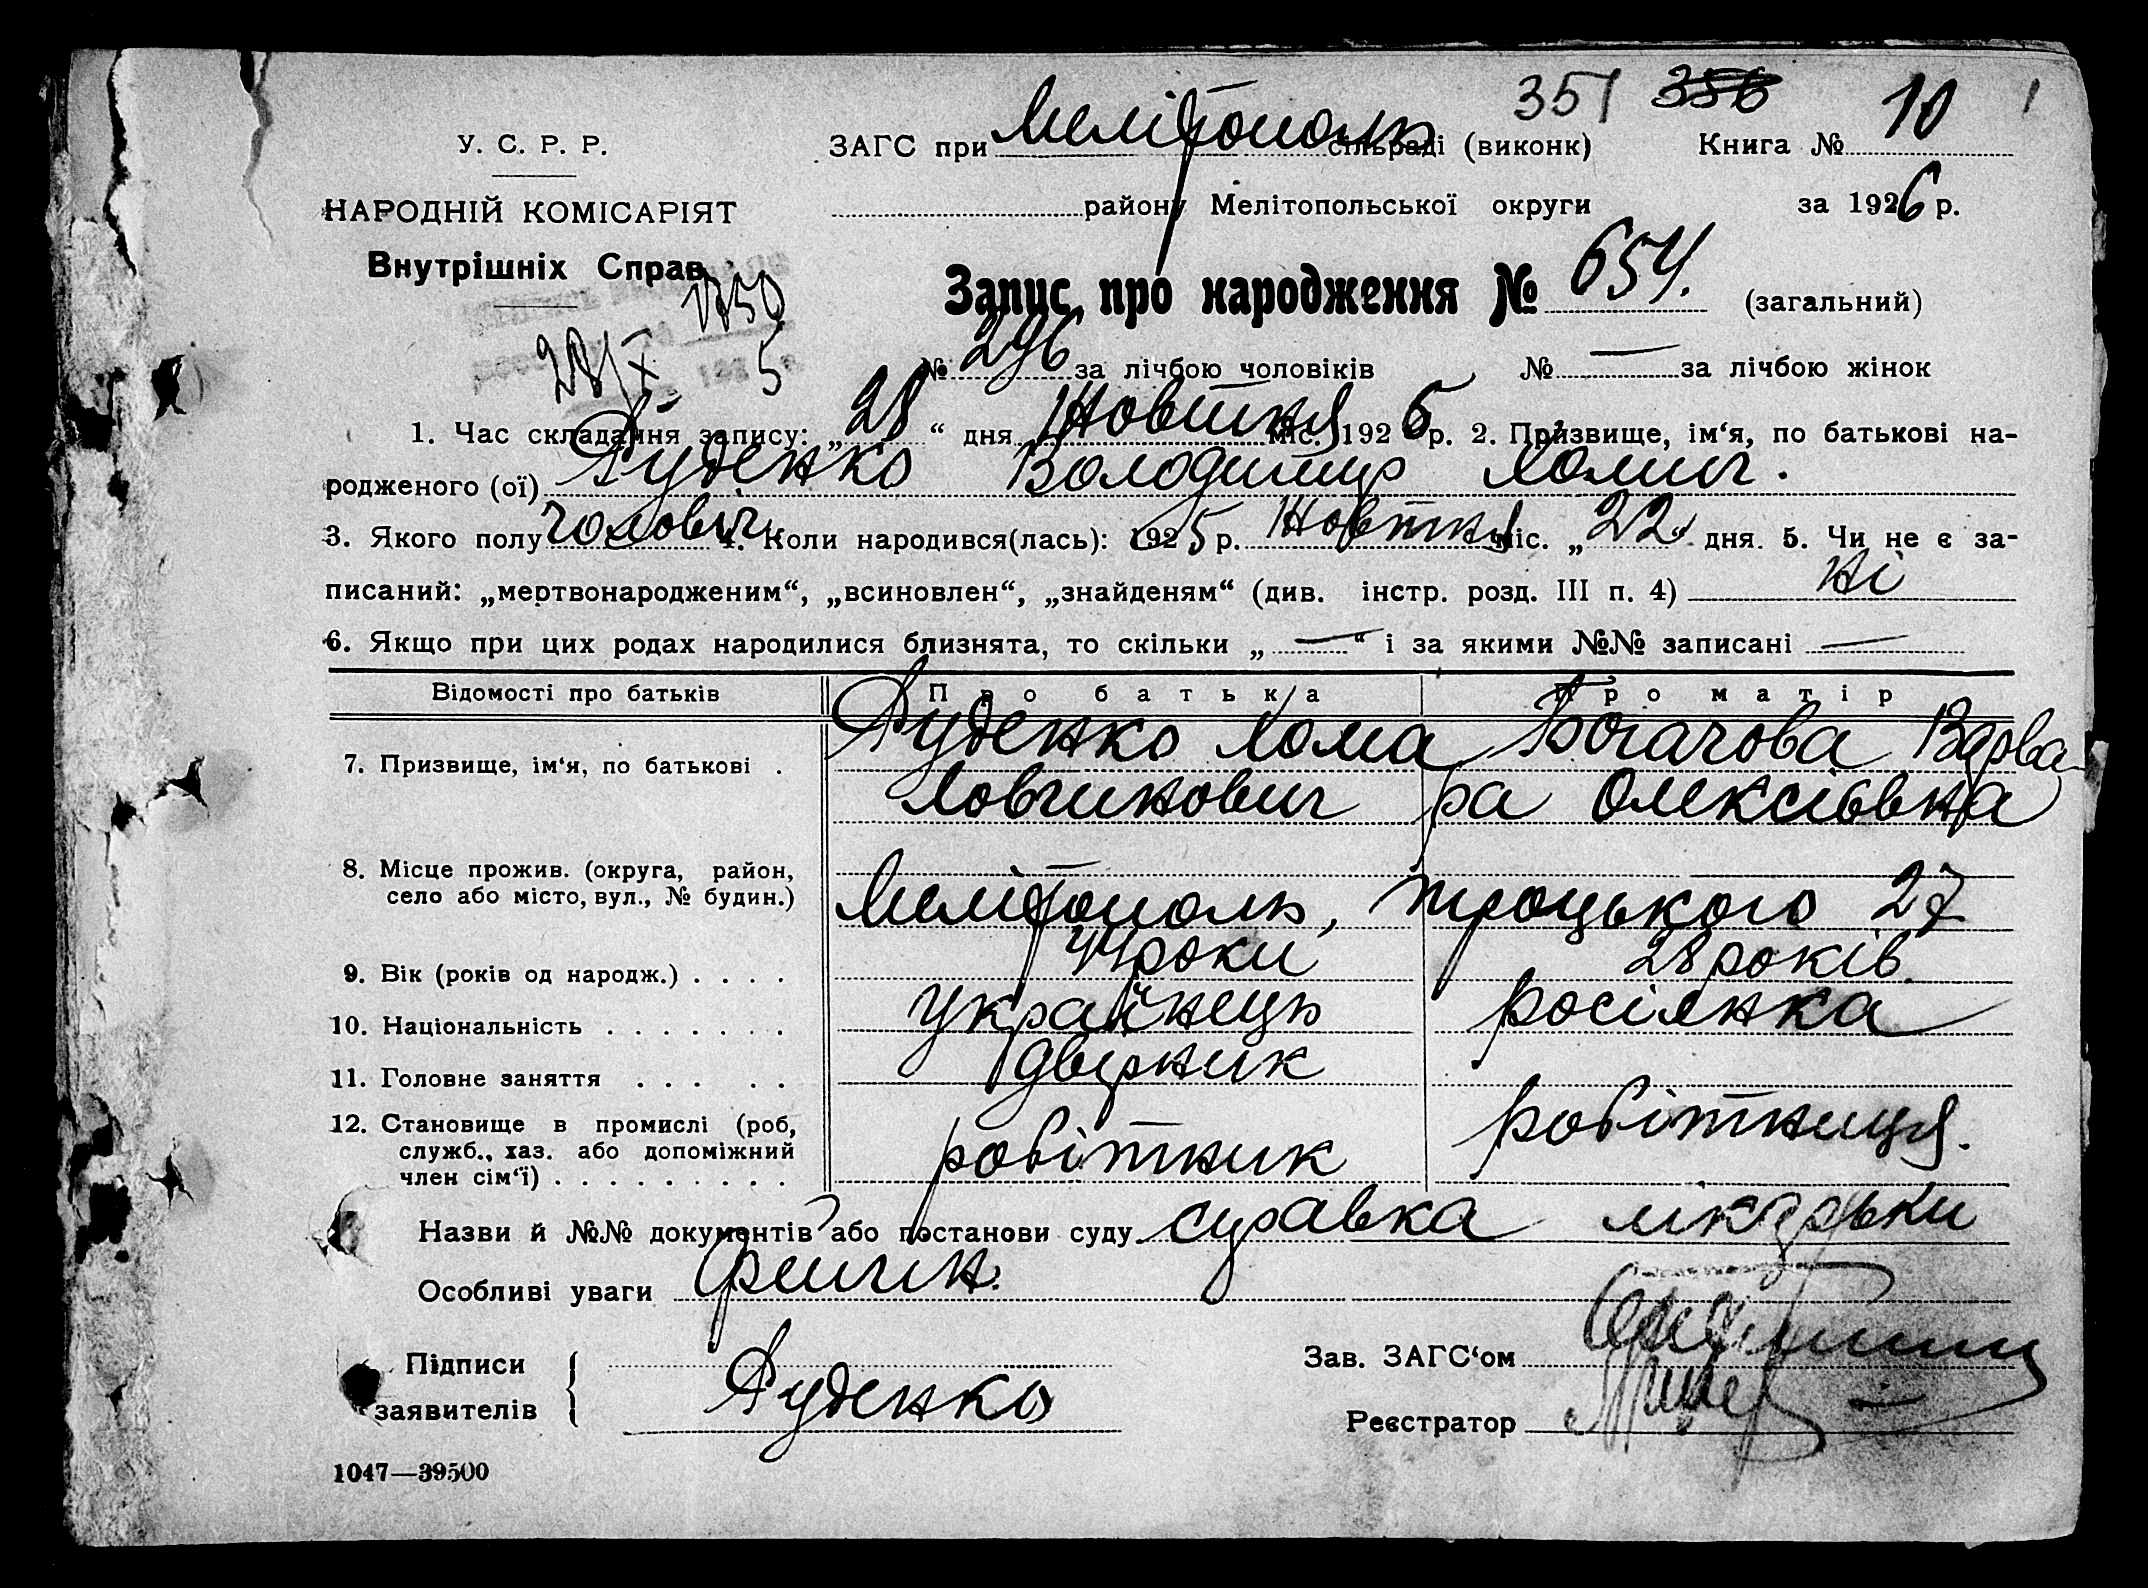 351 356 10 1
У. С. Р. Р.
ЗАГС при Мелітополь сільраді (виконк) Книга № 10
НАРОДНІЙ КОМІСАРІЯТ
району Мелітопольської округи за 1926 р.
Внутрішніх Справ
Запис про народження № 654. (загальний)
28/X 5
№ 296 за лічбою чоловіків № — за лічбою жінок
1. Час складання запису: „28“ дня Жовтня міс. 1925 р. 2. Призвище, ім‘я, по батькові на-
родженого (ої) Руденко Володимир Хомич.
3. Якого полу чоловіч. 4. Коли народився(лась): 1925 р. Жовтня міс. „22“ дня. 5. Чи не є за-
писаний: „мертвонародженим“, „всиновлен“, „знайденям“ (див. інстр. розд. III п. 4) ні
6. Якщо при цих родах народилися близнята, то скільки „—“ і за якими №№ записані —
Відомості про батьків Про батька Про матір
7. Призвище, ім‘я, по батькові . Руденко Хома Богачова Варва-
Ловчинович ра Олексіївна
8. Місце прожив. (округа, район,
село або місто, вул., № будин.) Мелітополь, Троцького 27
9. Вік (років од народж.) . . . . 44 роки 28 років.
10. Національність . . . . . . . українець росіянка
11. Головне заняття . . . . . двірник
12. Становище в промислі (роб,
служб., хаз. або допоміжний
член сім‘ї) . . . . . . . . . робітник робітниця.
Назви й №№ документів або постанови суду справка лікарьки
Особливі уваги
Підписи
заявителів Руденко
Зав. ЗАГС‘ом
Реєстратор
1047—39500